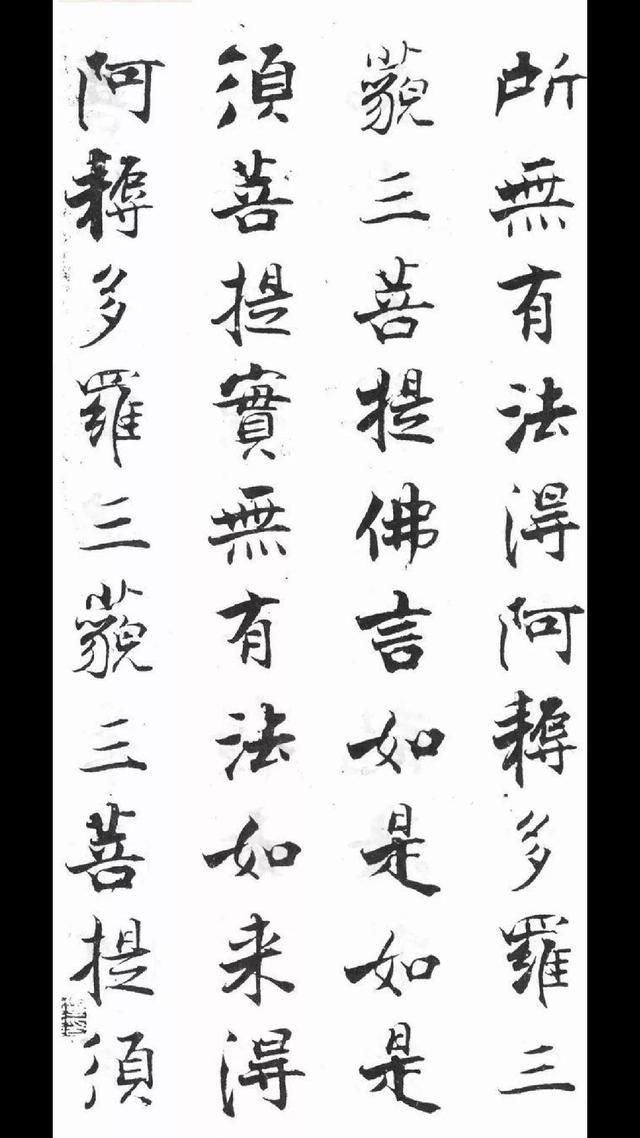 所無有法得阿耨多羅三
藐三菩提佛言如是如是
須菩提實無有法如来得
阿耨多羅三藐三菩提須